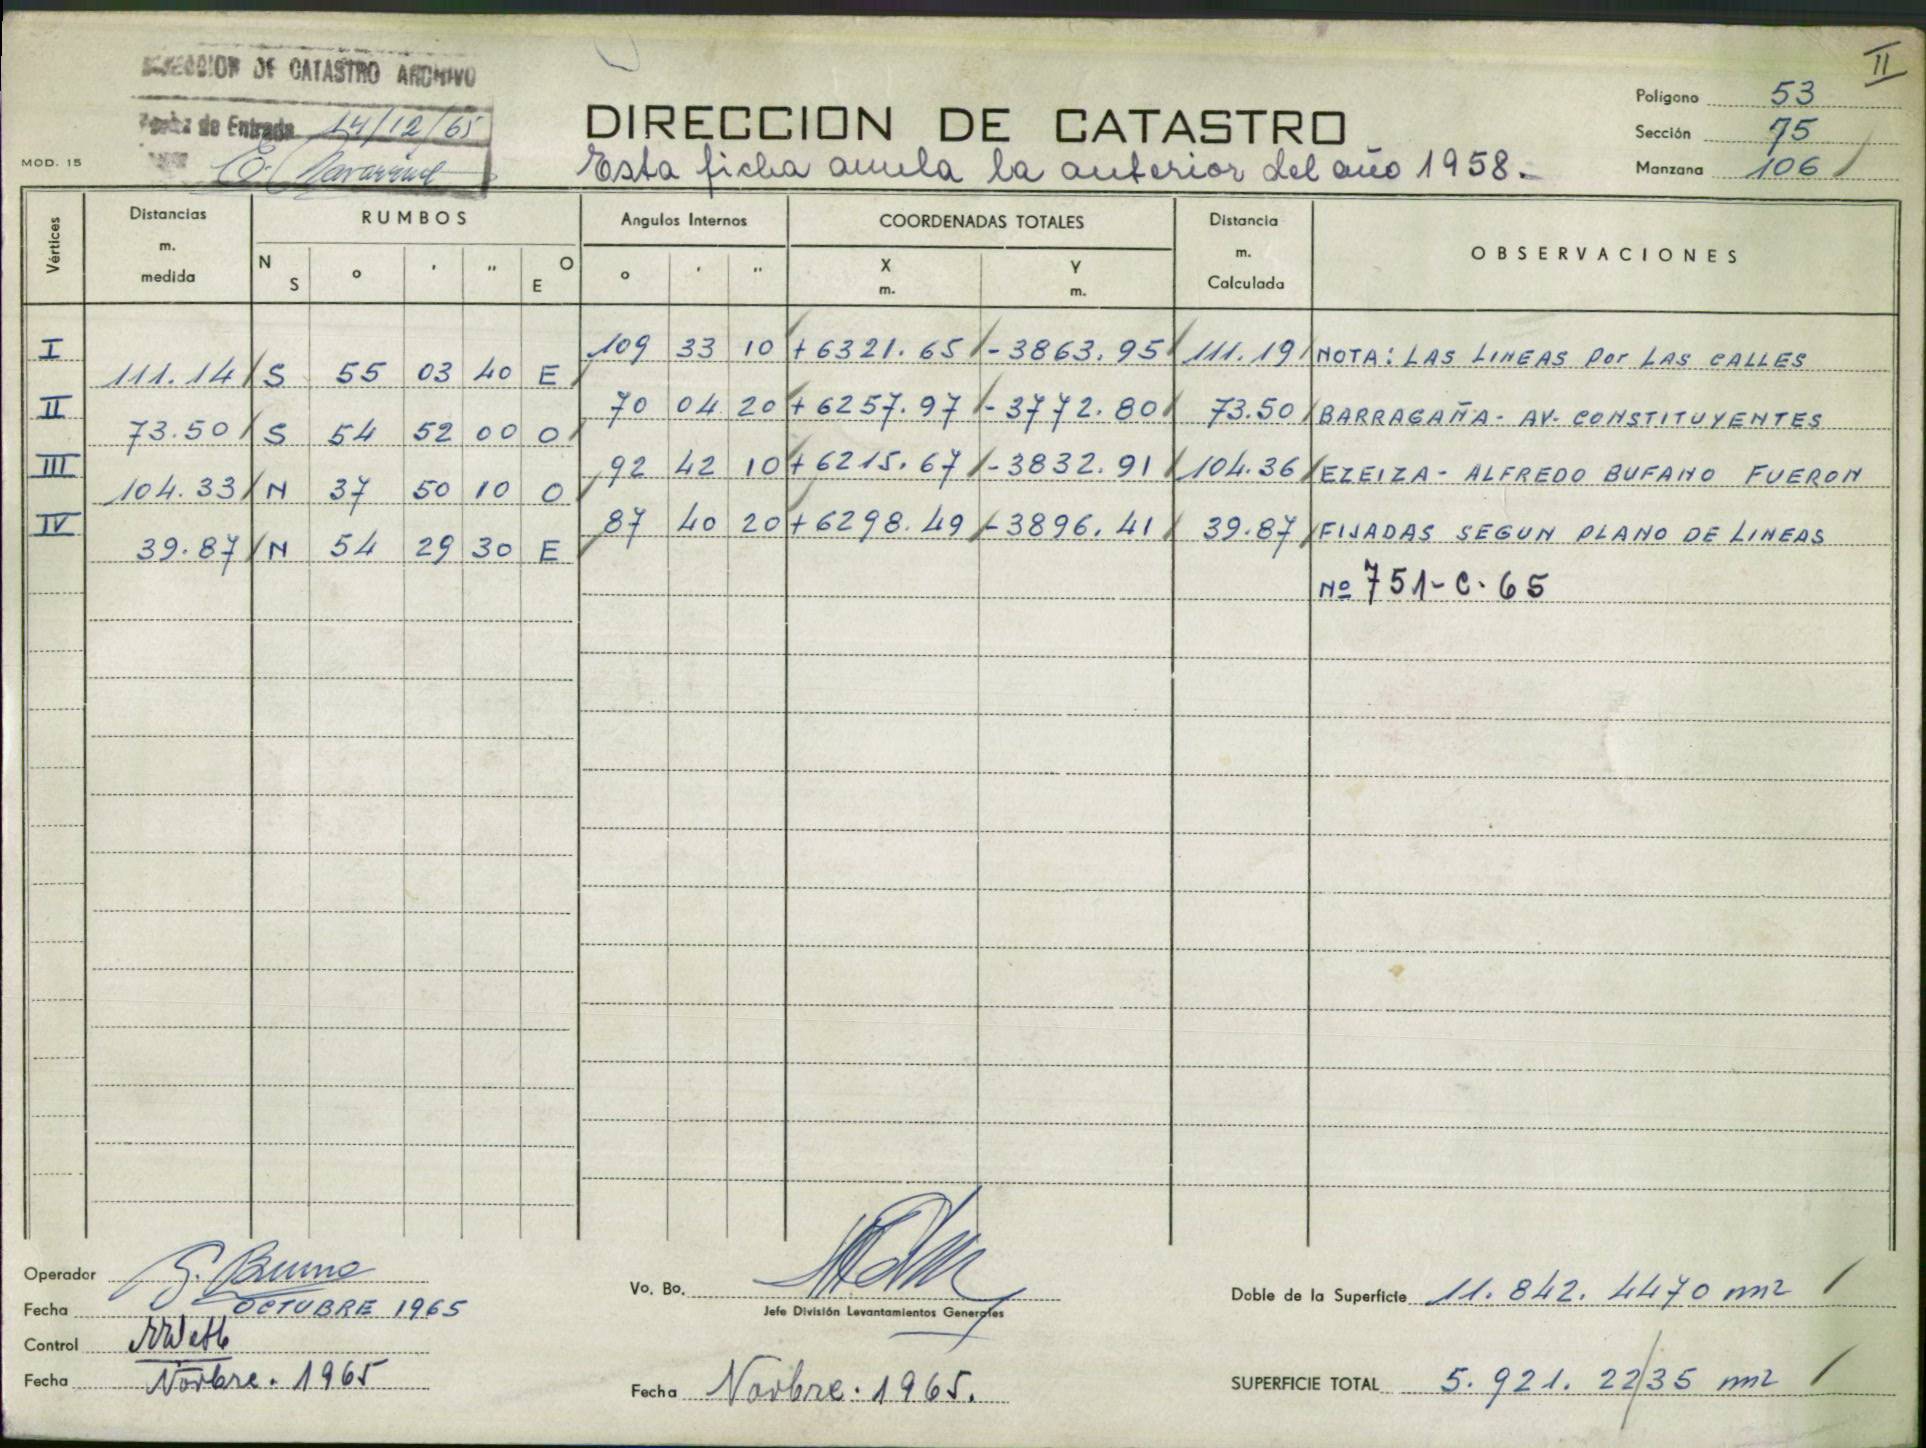 DIRECCION DE CATASTRO ARCHIVO
Fecha de Entrada 14/12/65
MOD. 15
II
DIRECCION DE CATASTRO
Esta ficha anula la anterior del año 1958.-
Poligono 53
Sección 75
Manzana 106
Vértices Distancias m. medida RUMBOS N S ° ' " O E Angulos Internos ° ' " COORDENADAS TOTALES X m. Y m. Distancia m. Calculada OBSERVACIONES
I 109 33 10 +6321.65 -3863.95 111.19 NOTA: LAS LINEAS Por LAS CALLES
111.14 S 55 03 40 E
II 70 04 20 +6257.97 -3772.80 73.50 BARRAGAÑA- AV- CONSTITUYENTES
73.50 S 54 52 00 O
III 92 42 10 +6215.67 -3832.91 104.36 EZEIZA- ALFREDO BUFANO FUERON
104.33 N 37 50 10 O
IV 87 40 20 +6298.49 -3896.41 39.87 FIJADAS SEGUN PLANO DE LINEAS
39.87 N 54 29 30 E
Nº 751-C-65
Operador G. Bruno
Fecha OCTUBRE 1965
Control
Fecha Novbre. 1965
Vo. Bo.
Jefe División Levantamientos Generales
Fecha Novbre. 1965.
Doble de la Superficie 11.842.4470 m2
SUPERFICIE TOTAL 5.921.2235 m2